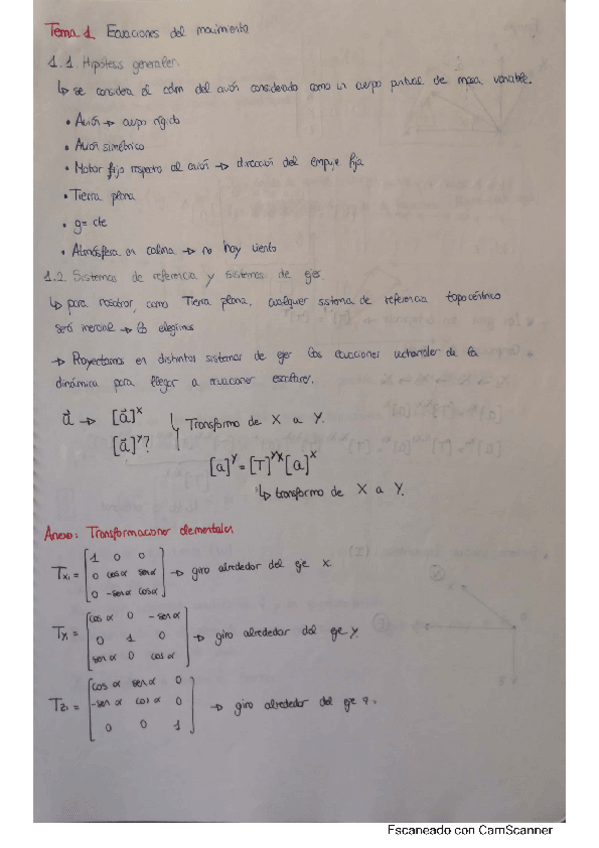 Tema 1. Ecuaciones del movimiento
1.1. Hipótesis generales.
↳ se considera el cdm del avión considerado como un cuerpo puntual de masa variable.
• Avión → cuerpo rígido
• Avión simétrico
• Motor fijo respecto al avión → dirección del empuje fija
• Tierra plana
• g = cte
• Atmósfera en calma → no hay viento
1.2. Sistemas de referencia y sistemas de ejes.
↳ para nosotros, como Tierra plana, cualquier sistema de referencia topocéntrico
será inercial → lo elegimos
→ Proyectamos en distintos sistemas de ejes las ecuaciones vectoriales de la
dinámica para llegar a ecuaciones escalares.
a⃗ → [a⃗]^X
[a⃗]^Y?
Transformo de X a Y.
[a]^Y = [T]^YX [a]^X
↳ transformo de X a Y.
Anexo: Transformaciones elementales
Tx₁ = [1 0 0; 0 cos α sen α; 0 -sen α cos α] → giro alrededor del eje x.
Ty₁ = [cos α 0 -sen α; 0 1 0; sen α 0 cos α] → giro alrededor del eje y.
Tz₁ = [cos α sen α 0; -sen α cos α 0; 0 0 1] → giro alrededor del eje z.
Escaneado con CamScanner